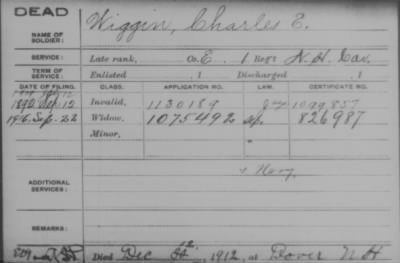 DEAD
NAME OF SOLDIER: Wiggin, Charles E.
SERVICE: Late rank, Co. E. 1 Reg't N. H. Cav.
TERM OF SERVICE: Enlisted , 1 Discharged , 1
DATE OF FILING. CLASS. APPLICATION NO. LAW. CERTIFICATE NO.
1892 Sep. 12 Invalid, 1130189 1099857
1916 Sep. 22 Widow, 1075492 826987
Minor,
ADDITIONAL SERVICES: Navy.
REMARKS:
Died Dec , 1912, at Dover N H